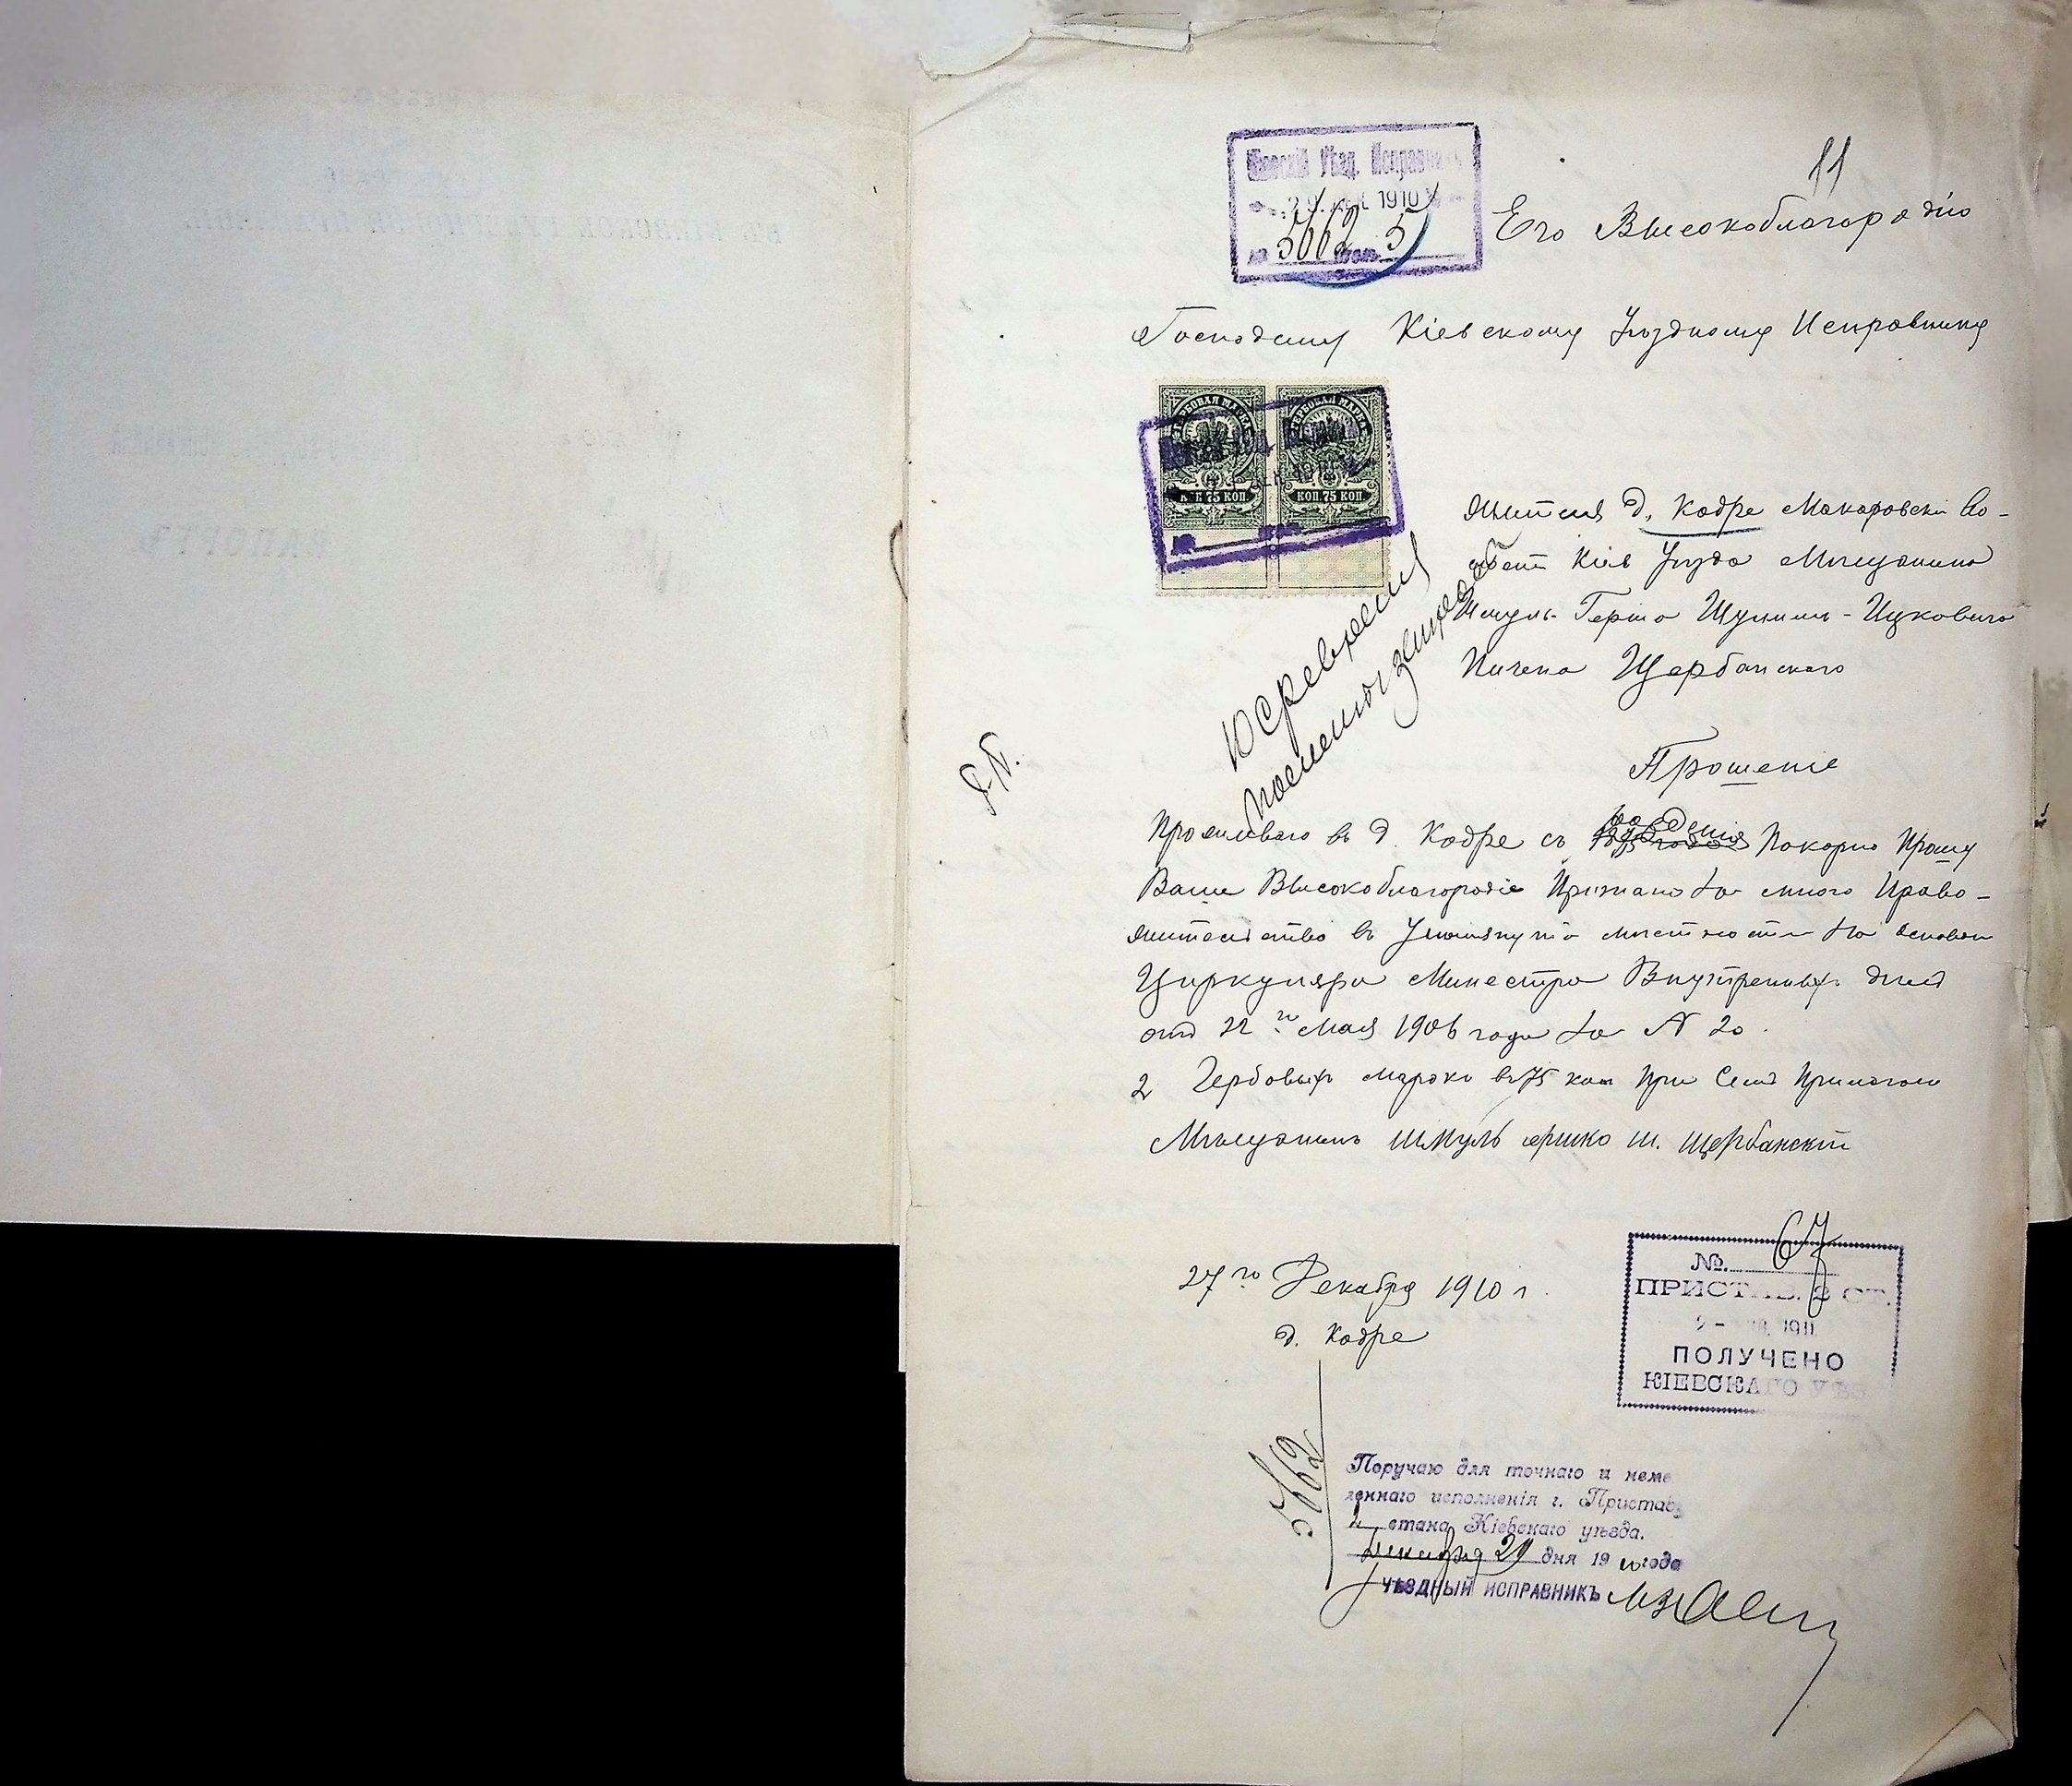 11
Кіевскій Уѣзд. Исправникъ
29 дек 1910
№ 5002 столъ 5
Его Высокоблагородію
Господину Кіевскому Уѣздному Исправнику
ГЕРБОВАЯ МАРКА ГЕРБОВАЯ МАРКА
КОП 75 КОП. КОП. 75 КОП.
жителя д. Кодре Макаровской Во-
лости Кіев Уѣзда Мѣщанина
Шмуль Гершо Шулимъ-Ицковича
Щербанскаго
Прошеніе
Проживаю въ д. Кодре съ рожденія Покорно Прошу
Ваше Высокоблагородіе Признано за мною Право-
жительство въ Упомянутой мѣстности на основан
Циркуляра Министра Внутренныхъ дѣлъ
отъ 22го Мая 1906 года за № 20.
2 Гербовыхъ марокъ въ 75 коп При Семъ Прилагаю
Мѣщанинъ Шмуль ершко ш. щербанскій
27го Декабря 1910 г.
д. Кодре
№. 67
ПРИСТАВ. 2 СТ.
1911
ПОЛУЧЕНО
КІЕВСКАГО УѢЗ
Поручаю для точнаго и неме
леннаго исполненія г. Приставу
2 стана Кіевскаго уѣзда.
Декабря 29 дня 1910 года
УѢЗДНЫЙ ИСПРАВНИКЪ